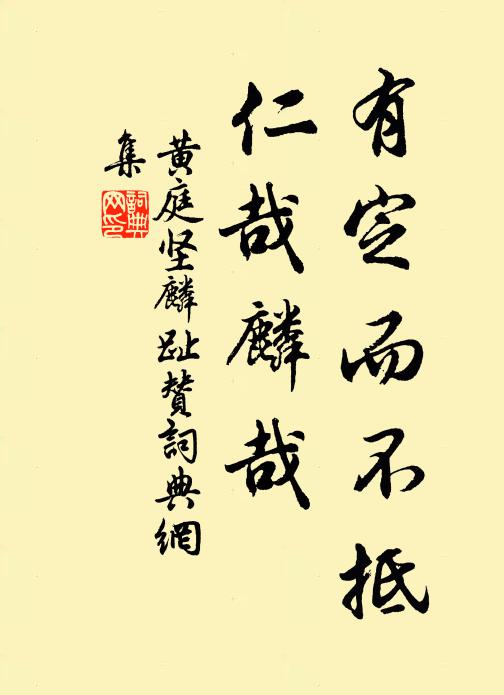 有定而不抵
仁哉麟哉
黄庭坚麟趾賛詞典網
集
詞典
网印